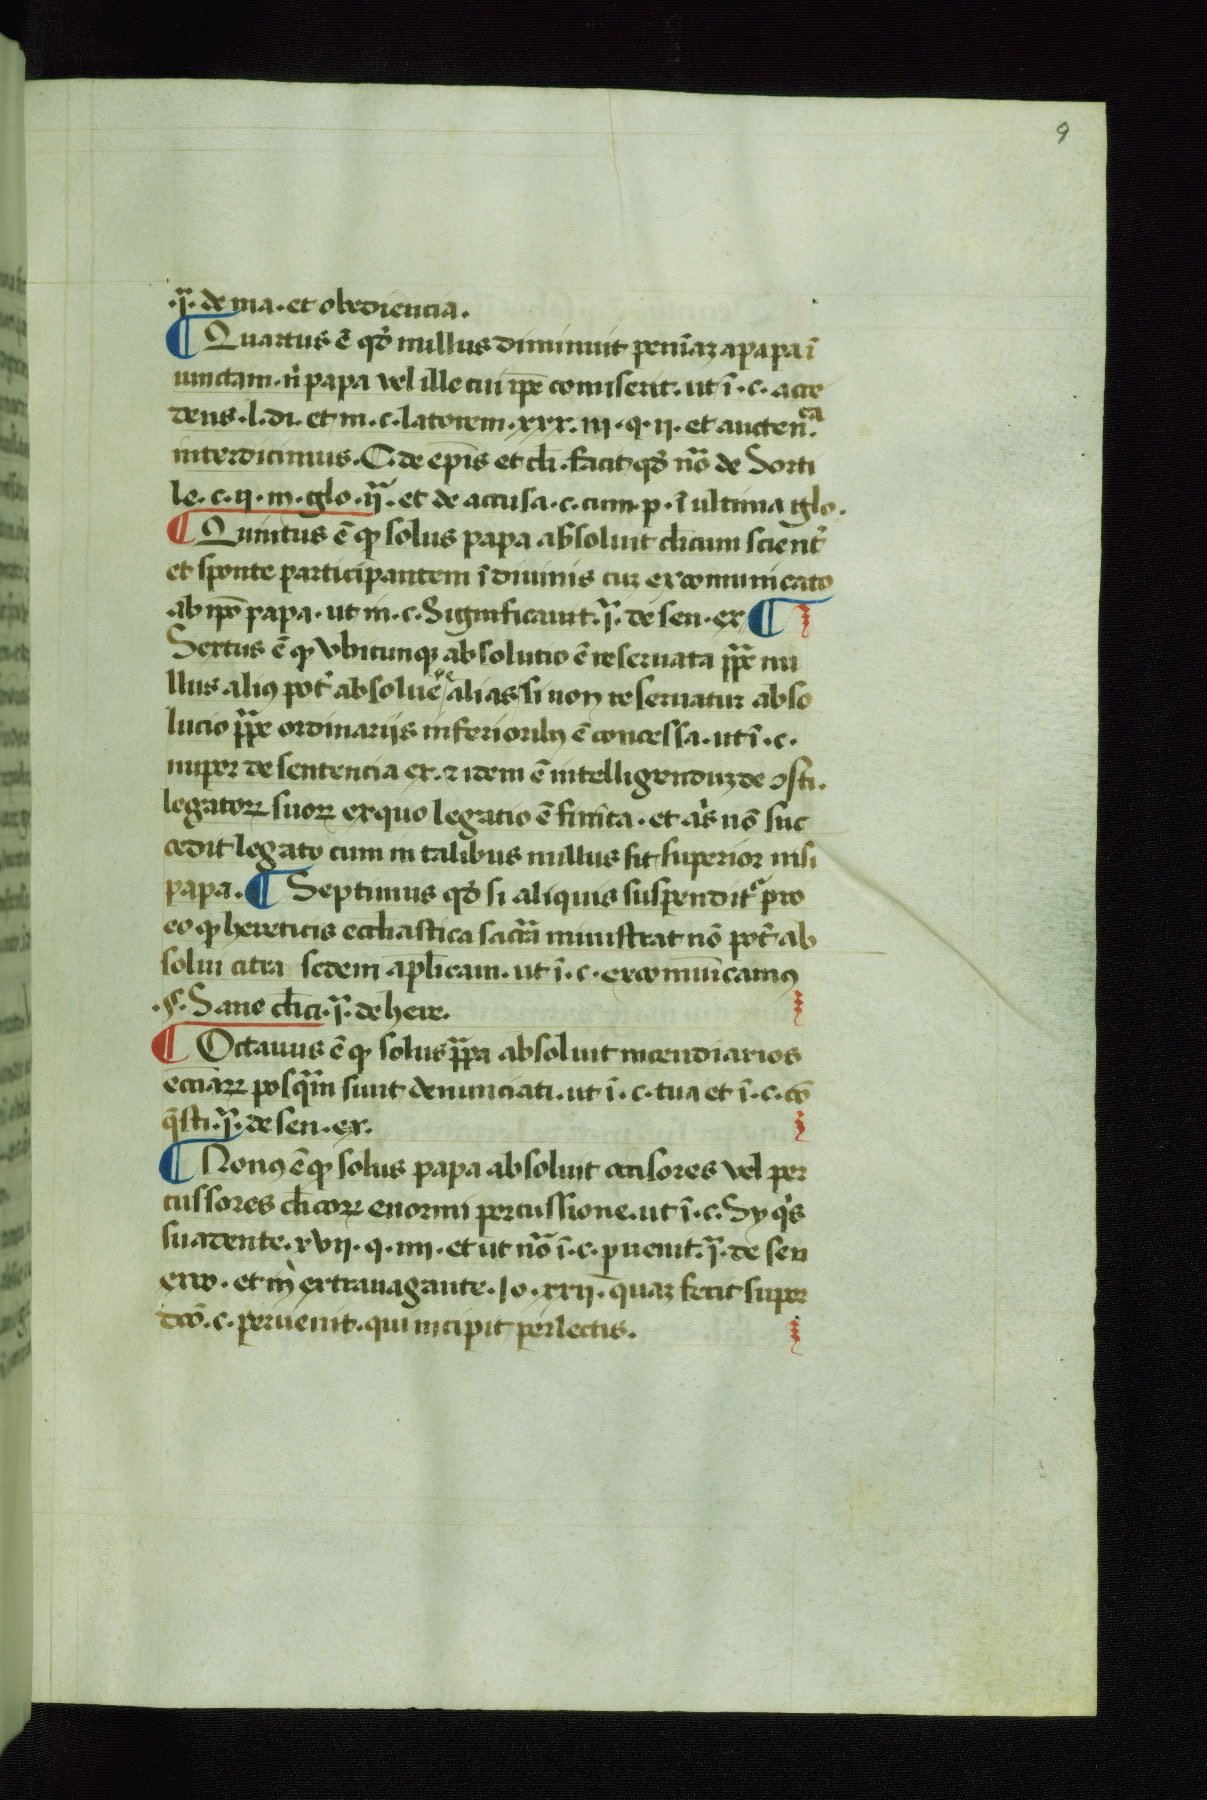 9
.ꝗ̄. de ma. et obediencia.
¶ Quartus ē qd̕ nullus diminuit penīaz a papa ī
iunctam. n̄ papa vel ille cui ip̄e comiserit. ut ī. c. acce
dens. l. di. et in. c. latorem. xxx. iii. q. ii. et aucten.ca
interdicimus. C. de ep̄is et cl̄i. facit qd̕ nō de Sorti
le. c. ii. in. glo. ii.a et de accusa. c. cum. p. ī ultima glo.
¶ Quintus ē ꝙ solus papa absoluit cl̄icum scient̕
et sponte participantem ī diuinis cuz excomunicato
ab ip̄o papa. ut in. c. Significauit. ꝗ̄. de sen. ex ¶
Sextus ē ꝙ Vbicunqꝫ absolutio ē reseruata pp̄e nu
llus aliꝰ pot̕ absoluē re alias si non reseruatur abso
lucio pp̄e ordinarijs inferioribꝰ ē concessa. ut ī. c.
nuper de sentencia ex. ⁊ idem ē intelligenduz de ꝯsti.
legatoꝝ suoꝝ ex quo legatio ē finita. et a̕s nō suc
cedit legato cum in talibus nullus sit superior nisi
papa. ¶ Septimus qd̕ si aliquis suspendit̕ pro
eo ꝙ hereticis eccl̄iastica sacrā ministrat nō pot̕ ab
solui citra sedem apl̄icam. ut ī. c. excomūicamꝰ
.§. Sane cl̄ici. ꝗ̄. de here.
¶ Octauus ē ꝙ solus pp̄a absoluit incendiarios
ecciaꝝ posqꝫm sunt denunciati. ut ī. c. tua et ī. c. cō
q̄sti. ꝗ̄. de sen. ex.
¶ Nonꝰ ē ꝙ solus papa absoluit occisores vel per
cussores cl̄icoꝝ enormi percussione. ut ī. c. Sy q̕s
suadente. xvii. q. iiii. et ut nō ī. c. puenit. ꝗ̄. de sen
exco. et in extrauagante. Io. xxii. quaz fecit super
dc̄o. c. peruenit. qui incipit perlectis.